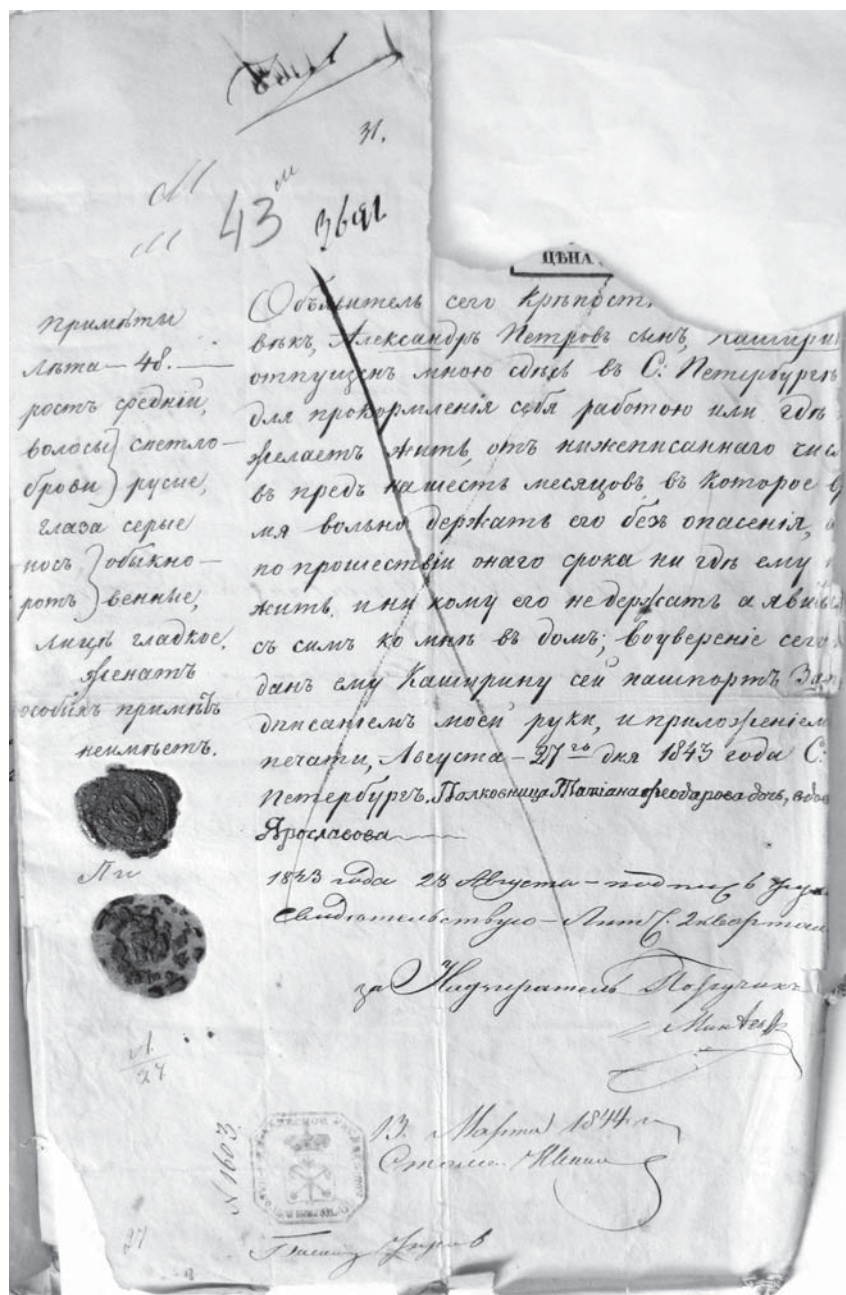 31.
М
43
3691
ЦѢНА
Примѣты
Лѣта — 48. —
ростъ средній,
волосы } светло—
брови } русые,
глаза серые
носъ } обыкно—
ротъ } венные,
лице гладкое,
женатъ
особыхъ примѣтъ
неимѣетъ.
Объявитель сего Крѣпост
вѣкъ, Александръ Петровъ сынъ, Кашири
отпущен мною сдѣсь въ С: Петербургѣ
для прокормленія себя работою или гдѣ
желаетъ жить, отъ нижеписаннаго чис
въ предь нашесть месяцовъ въ которое в
мя вольно держать его безъ опасенія, а
по прошествіи онаго срока ни гдѣ ему
жить. и ни кому его не держать а яви
съ симъ ко мнѣ въ домъ; воуверение сего
данъ ему Каширину сей пашпортъ За
дписаніемъ моей руки, и приложеніем
печати, Августа — 27го дня 1843 года С:
Петербургъ. Полковница Татіана Феодорова дочь, вдо
Ярославова
1843 года 28 Августа — подпис
Свидѣтельствую — Лит 2 кварта
за Надзиратель Поручик
Л
27
N 1603
13. Марта 1844
27